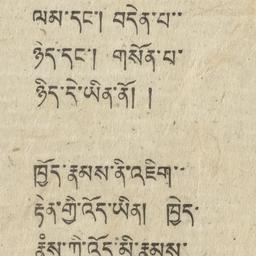 ལམ་དང་། བདེན་པ་་
ཉེད་དང་། གསོན་པ་
ཉིད་དེ་ཡིན་ནོ། །
ཁྱོད་རྣམས་ནི་འཇིག་་
རྟེན་གྱི་འོད་ཡིན། ཁྱེད་
རྣམས་ཀྱི་འོད་མི་རྣམས་